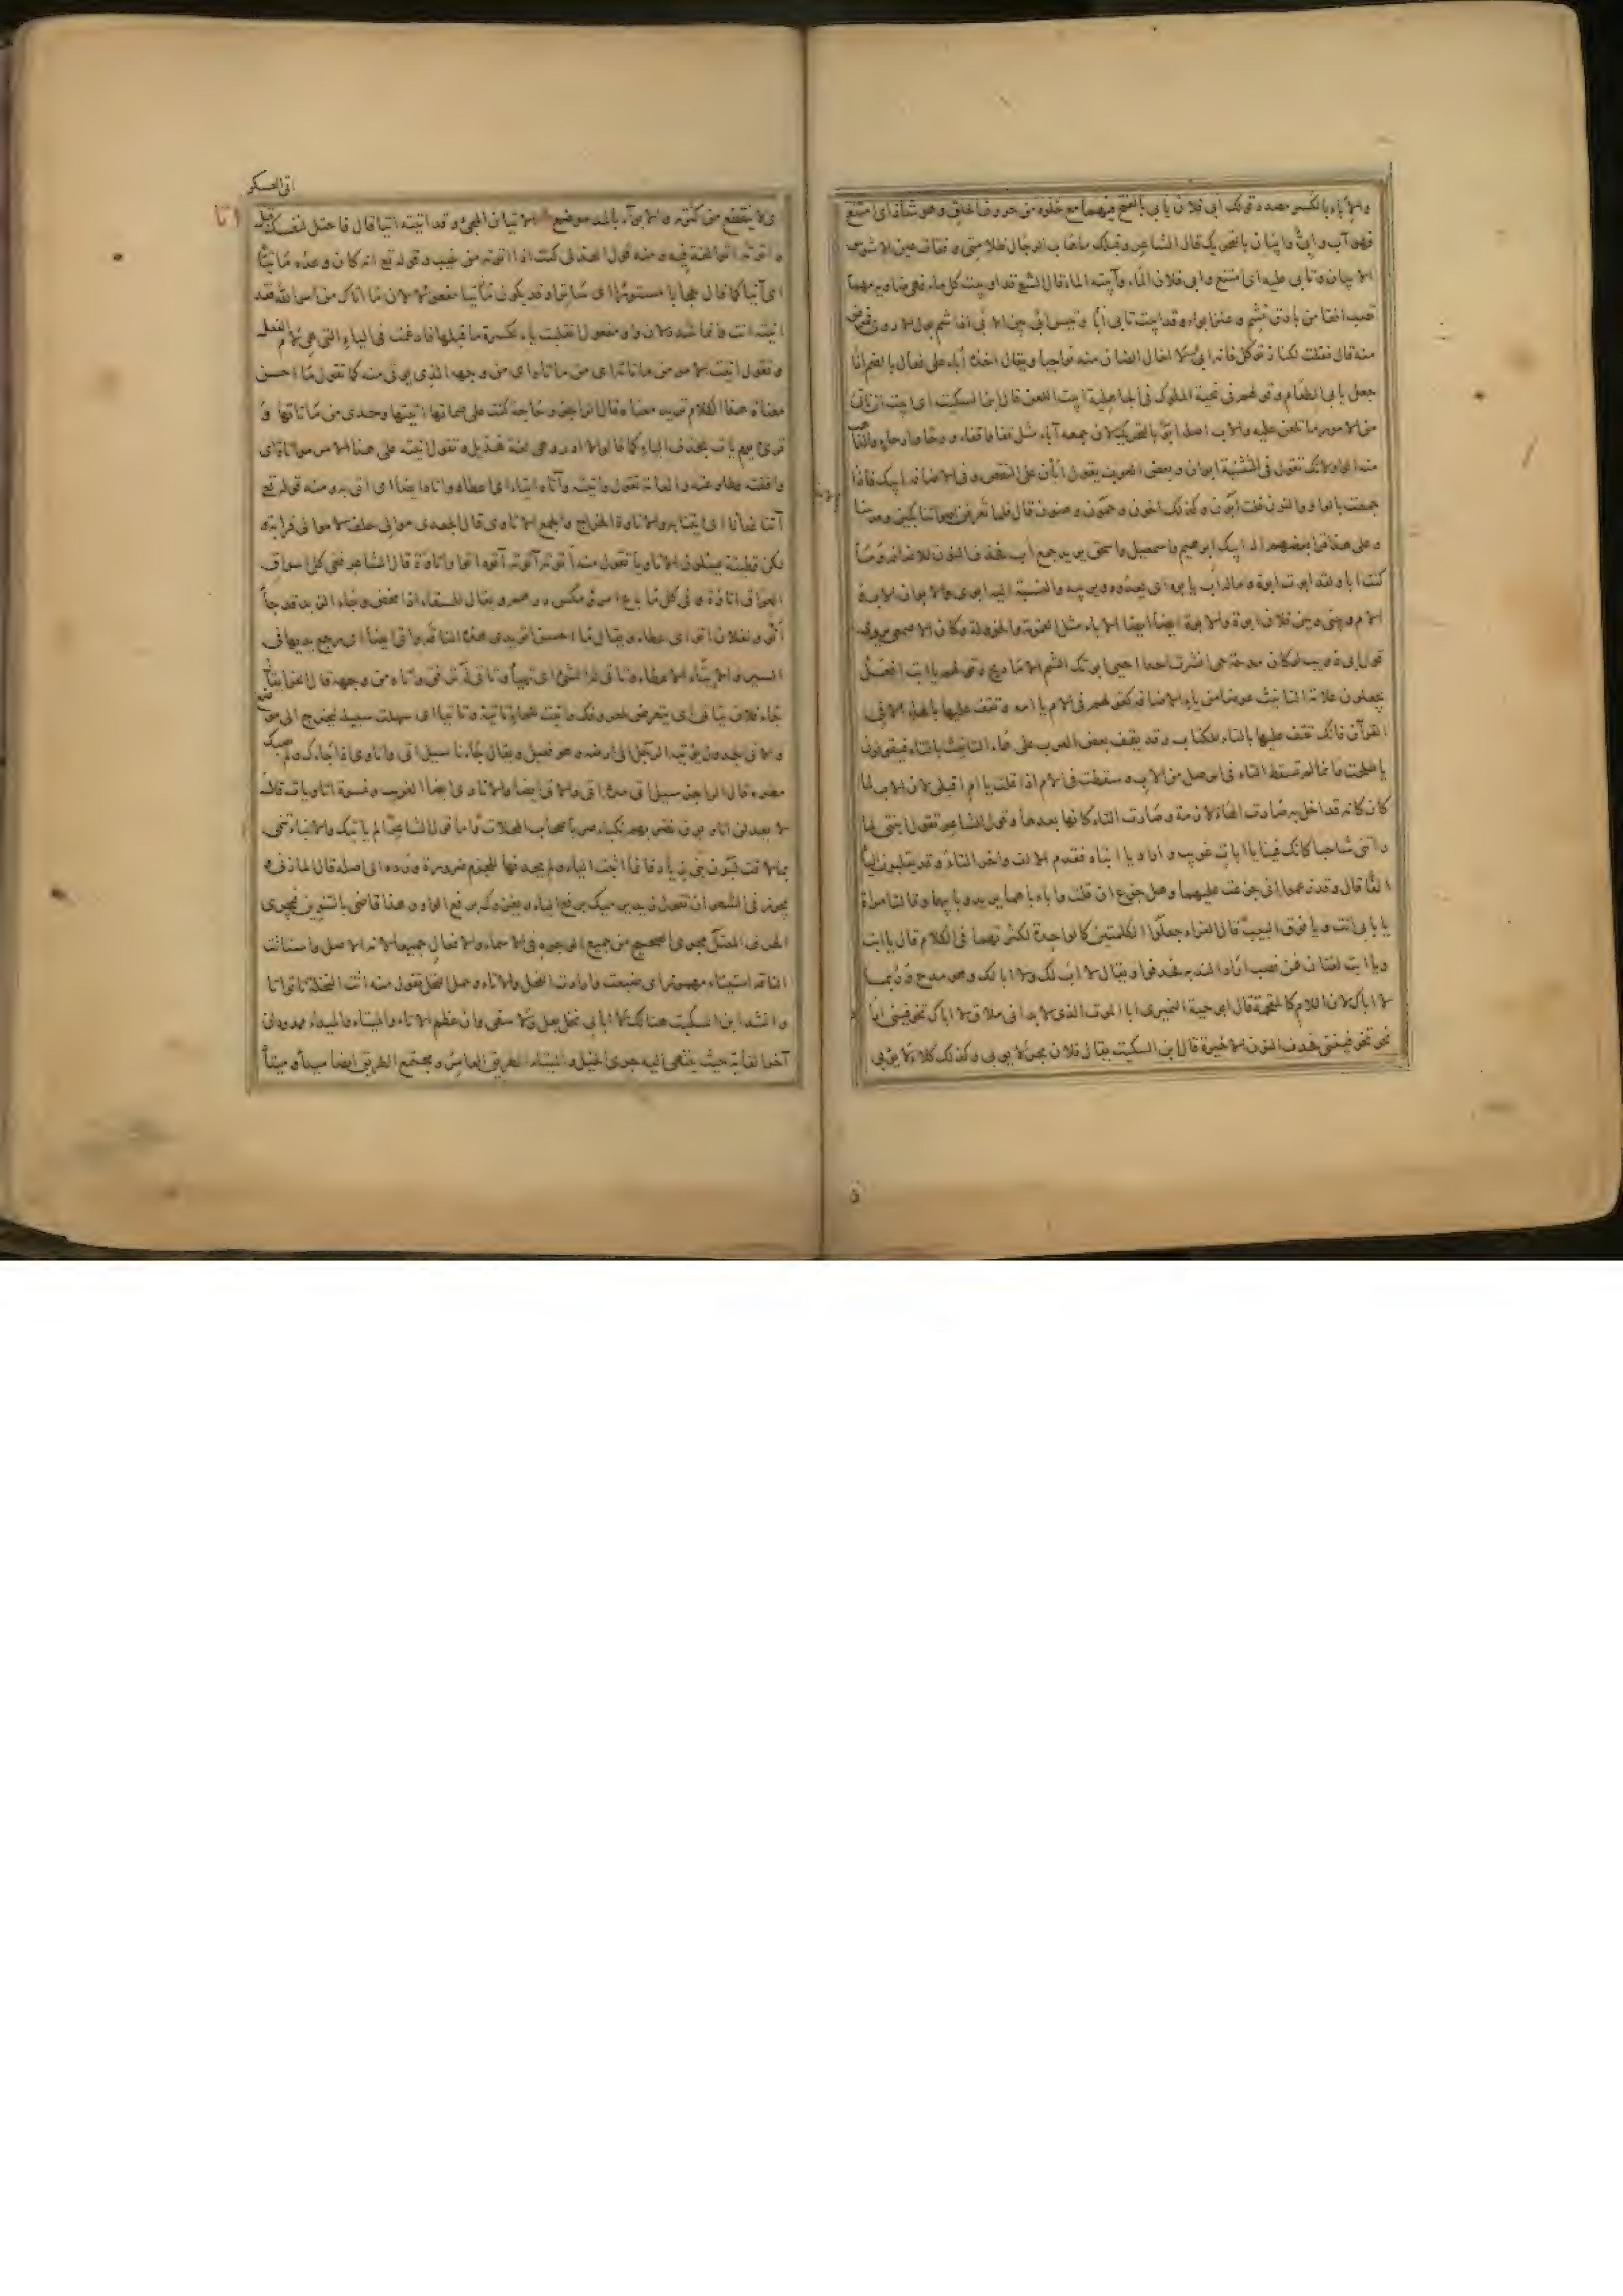 والاباء بالكسر مصدر قولك ابى فلان يابى بالفتح فيهما مع خلوه من حروف الحلق وهو شاذ اى امتنع
فهو آب وابىّ وابيان بالتحريك قال الشاعر وقبلك ما هاب الرجال ظلامتى وفقأت عين الاشوس
الابيان وتأبى عليه اى امتنع وابى فلان الماء وآبيته الماء قال الشاعر قد اوبيت كل ماء فهى ضاوية مهما
تصب افقا من بارق تشم وعنز ابواء وقد ابيت تأبى أبا وتيس ابى
منه قال فقلت لكناز توكل فانه ابى لا اخال الضان منه نواجيا ويقال اخذه اباء على فعال بالضم اذا
جعل يابى الطعام وقولهم فى تحية الملوك فى الجاهلية ابيت اللعن قال ابن السكيت اى ابيت ان تاتى
من الامور ما تلعن عليه والاب اصله ابو بالتحريك لان جمعه آباء مثل قفا واقفاء ورحا وارحاء
منه واو لانك تقول فى التثنية ابوان وبعض العرب يقول ابان على النقص وفى الاضافة ابيك فاذا
جمعت بالواو والنون قلت ابون وكذلك اخون وحمون وهنون قال فلما تعرفن اصواتنا بكين وفديننا
وعلى هذا قرا بعضهم اله ابيك ابرهيم واسمعيل واسحق يريد جمع اب فحذف النون للاضافة وما
كنت ابا ولقد ابوت ابوة وماله اب يابوه اى يغذوه ويربيه والنسبة اليه ابوى والابوان الاب
والام وبينى وبين فلان ابوة والابوة ايضا الاباء مثل العمومة والخؤولة وكان الاصمعى يروى
قول ابى ذويب لو كان مدحة حى انشرت احدا احيى ابوتك الشم الاماديح وقولهم يا ابت افعل
يجعلون علامة التانيث عوضا من ياء الاضافة كقولهم فى الام يا امه وتقف عليها بالهاء الا فى
القرآن فانك تقف عليها بالتاء للكتاب وقد يقف بعض العرب على هاء التانيث بالتاء فيقولون
يا طلحت وانما لم تسقط التاء فى الوصل من الاب وسقطت فى الام اذا قلت يا ام اقبلى لان الاب لما
كان كانه قد اخل به صارت الهاء لازمة وصارت التاء كانها بعدها وقول الشاعر تقول ابنتى لما
راتنى شاحبا كانك فينا يا ابات غريب واراد يا ابتاه فقدم الالف واخر التاء وقد يقلبون الياء
الفا قال وقد زعموا انى جزعت عليهما وهل جزع ان قلت وابأباهما يريد وابابيهما وقالت امراة
يا بابى انت ويا فوق البيب قال الفراء جعلوا الكلمتين كالواحدة لكثرتهما فى الكلام قال يا ابت
ويا ابت لغتان فمن نصب اراد الندبة فحذفها ويقال لا اب لك ولا ابا لك وهو مدح وربما
لا اباك لان اللام كالمقحمة قال ابو حية النميرى ابا الموت الذى لا بد انى ملاق لا اباك تخوفينى
تخوفيننى فحذف النون الاخيرة قال ابن السكيت يقال فلان بحر لا يوبى وكذلك كلاء لا يوبى
اتى العسكر
اتا
اى لا ينقطع من كثرته والابواء بالمد موضع الاتيان المجىء وقد اتيته اتيا قال فاحتل لنفسك قبل
واتوته اتوا لغة فيه ومنه قول الهذلى كنت اذا اتوته من غيب وقوله تع انه كان وعده ماتيا
اى آتيا كما قال حجابا مستورا اى ساترا وقد يكون ماتيا مفعولا لان ما اتاك من امر الله فقد
اتيته انت وانما شدد لان واو مفعول انقلبت ياء لكسرة ما قبلها فادغمت فى الياء التى هى لام الفعل
وتقول اتيت الامر من ماتاته اى من ماتاه اى من وجهه الذى يوتى منه كما تقول ما احسن
معناة هذا الكلام تريد معناه قال الراجز وحاجة كنت على صماتها اتيتها وحدى من ماتاتها و
قرئ يوم يات بحذف الياء كما قالوا لا ادر وهى لغة هذيل وتقول آتيته على هذا الامر مواتاة اى
وافقته وطاوعته والعامة تقول واتيته وآتاه ايتاء اى اعطاه وآتاه ايضا اى اتى به ومنه قوله تع
آتنا غداءنا اى ايتنا به والاتاوة الخراج والجمع الاتاوى قال الجعدى موالى حلف لا موالى قرابة
لكن قطينا يسئلون الاتاويا تقول منه اتوته آتوه اتوا واتاوة قال الشاعر ففى كل اسواق
العراق اتاوة وفى كل ما باع امرؤ مكس درهم ويقال للسقاء اذا مخض وجاء الزبد قد جاء
أتوه ولفلان اتو اى عطاء ويقال ما احسن اتو يدى هذه الناقة واتى ايضا اى رجع يديها فى
السير والايتاء الاعطاء وتاتى له الشئ اى تهيأ وتاتى له اى ترفق واتاه من وجهه قال الفراء يقال
جاء فلان يتاتى اى يتعرض لمعروفك واتيت للماء تاتية وتاتيا اى سهلت سبيله ليخرج الى موضع
والاتى الجدول يوتيه الرجل الى ارضه وهو فعيل ويقال جاءنا سيل اتى واتاوى اذا جاءك ولم يصبك
مطره قال الراجز سيل اتى مده اتى والاتى ايضا والاتاوى ايضا الغريب ونسوة اتاويات قال
لا يعدلن اتاويون تضربهم نكباء صر باصحاب المحلات واما قول الشاعر الم ياتيك والانباء تنمى
بما لاقت لبون بنى زياد فانما اثبت الياء ولم يحذفها للجزم ضرورة ورده الى اصله قال المازنى
يجوز فى الشعر ان تقول زيد يرميك برفع الياء ويغزوك برفع الواو وهذا قاضى بالتنوين فيجرى
الحرف المعتل مجرى الصحيح من جميع الوجوه فى الاسماء والافعال جميعا لانه الاصل واستاتت
الناقة استيتاء مهموز اى ضبعت وارادت الفحل والاتاء وحمل النخل تقول منه اتت النخلة تاتوا اتا
وانشد ابن السكيت هنالك لا ابالى نخل بعل ولا سقى وان عظم الاتاء والميتاء والميداء ممدودان
آخر الغاية حيث ينتهى اليه جرى الخيل والميتاء الطريق العامر ومجتمع الطريق ايضا ميتاء وميداء